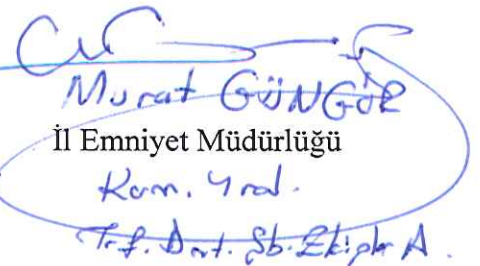 Murat GÜNGÖR
İl Emniyet Müdürlüğü
Kom. Yrd.
Trf. Dnt. Şb. Ekipler A.